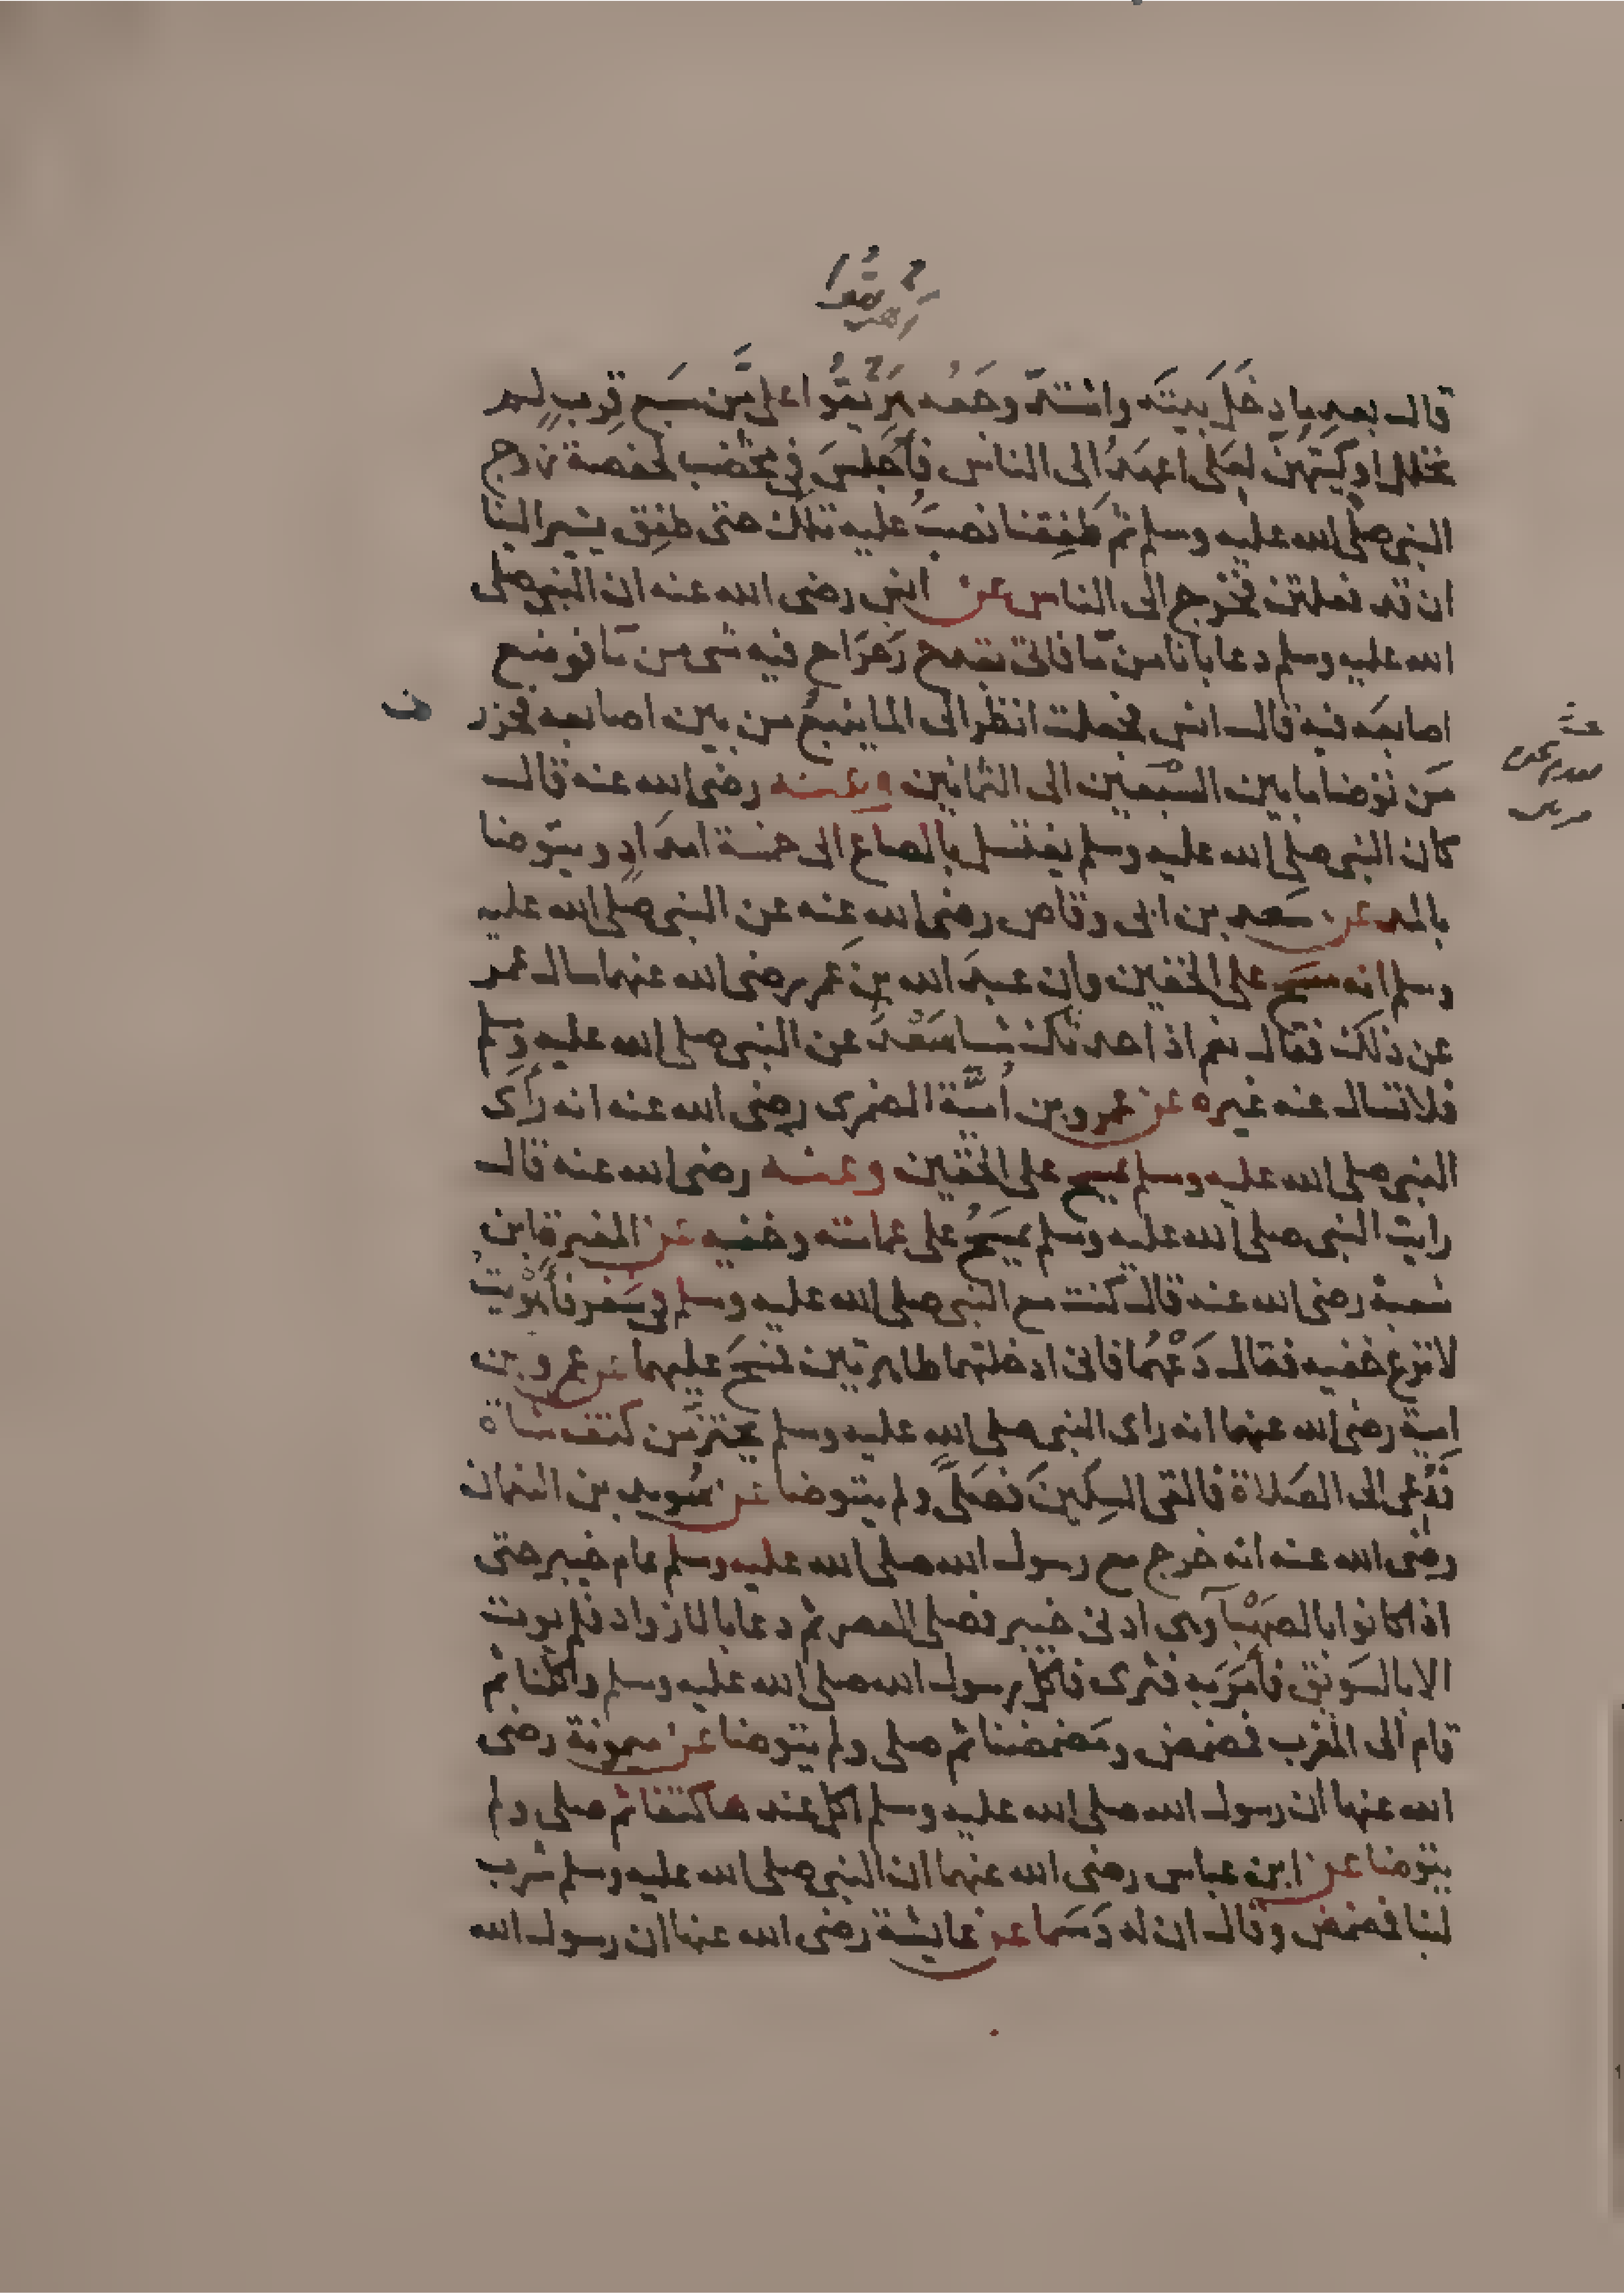 اهريقوا
قال بعد ما دخَلَ بيتَه واشتدَّ وجَعُه هَرِيقُوا علىَّ من سَبع قِرَبٍ لم
تحلل اوكيتهن لعلى اعهدُ الى الناس فأُجلِسَ فى مخضب لحفصة زوج
النبى صلى الله عليه وسلم ثم طَفِقنا نصبُّ عليه تلك حتى طفِق يشير الينا
ان قد فعلتن فخرج الى الناس عن انس رضى الله عنه ان النبى صلى
الله عليه وسلم دعا باناء من مآ فاتى بقدح رَحرَاح فيه شى من مآ فوضع
اصابعَه فيه قال انس فجعلت انظر الى الما ينبعُ من بين اصابعه فحزر
ف
مَن توضا ما بين السبعين الى الثمانين وعنه رضى الله عنه قال
كان النبى صلى الله عليه وسلم يغتسل بالصاع الى خمسة امدَادٍ ويتوضا
بالمد عن سَعد بن ابى وقاص رضى الله عنه عن النبى صلى الله عليه
وسلم انه مسَح على الخفين وان عبدَ الله بن عمر رضى الله عنهما سال عمر
عن ذلك فقال نعم اذا حدثك شيا سَعْدٌ عن النبى صلى الله عليه وسلم
فلا تسال عنه غيره عن عمرو بن أميَّة الضمرى رضى الله عنه انه رأى
النبى صلى الله عليه وسلم يمسح على الخفين وعنه رضى الله عنه قال
رايت النبى صلى الله عليه وسلم يمسَحُ على عمامته وخفيه عن المغيرة ابن
شعبة رضى الله عنه قال كنت مع النبى صلى الله عليه وسلم فى سَفر فأهْويتُ
لانزع خفيه فقال دَعْهُما فانى ادخلتهما طاهرتين فمسَحَ عليهما عن عمرو بن
امية رضى الله عنهما انه راى النبى صلى الله عليه وسلم يحتزّ من كتف شاة
فدُعى الى الصَلاة فالقى السِكينَ فصَلىَّ ولم يتوضا عن سُويد بن النعمان
رضى الله عنه انه خرج مع رسول الله صلى الله عليه وسلم عام خيبر حتى
اذا كانوا بالصَهْبآ وهى ادنى خيبر فصلى العصر ثم دعا بالازواد فلم يوت
الا بالسَويق فأمَرَ به فثرى فاكل رسول الله صلى الله عليه وسلم واكلنا ثم
قام الى المغرب فمضمض ومَضمضنا ثم صلى ولم يتوضا عن ميمونة رضى
الله عنها ان رسول الله صلى الله عليه وسلم اكل عندها كتفا ثم صلى ولم
يتوضا عن ابن عباس رضى الله عنهما ان النبى صلى الله عليه وسلم شرب
لبنا فمضمض وقال ان له دَسَما عن عايشة رضى الله عنها ان رسول الله